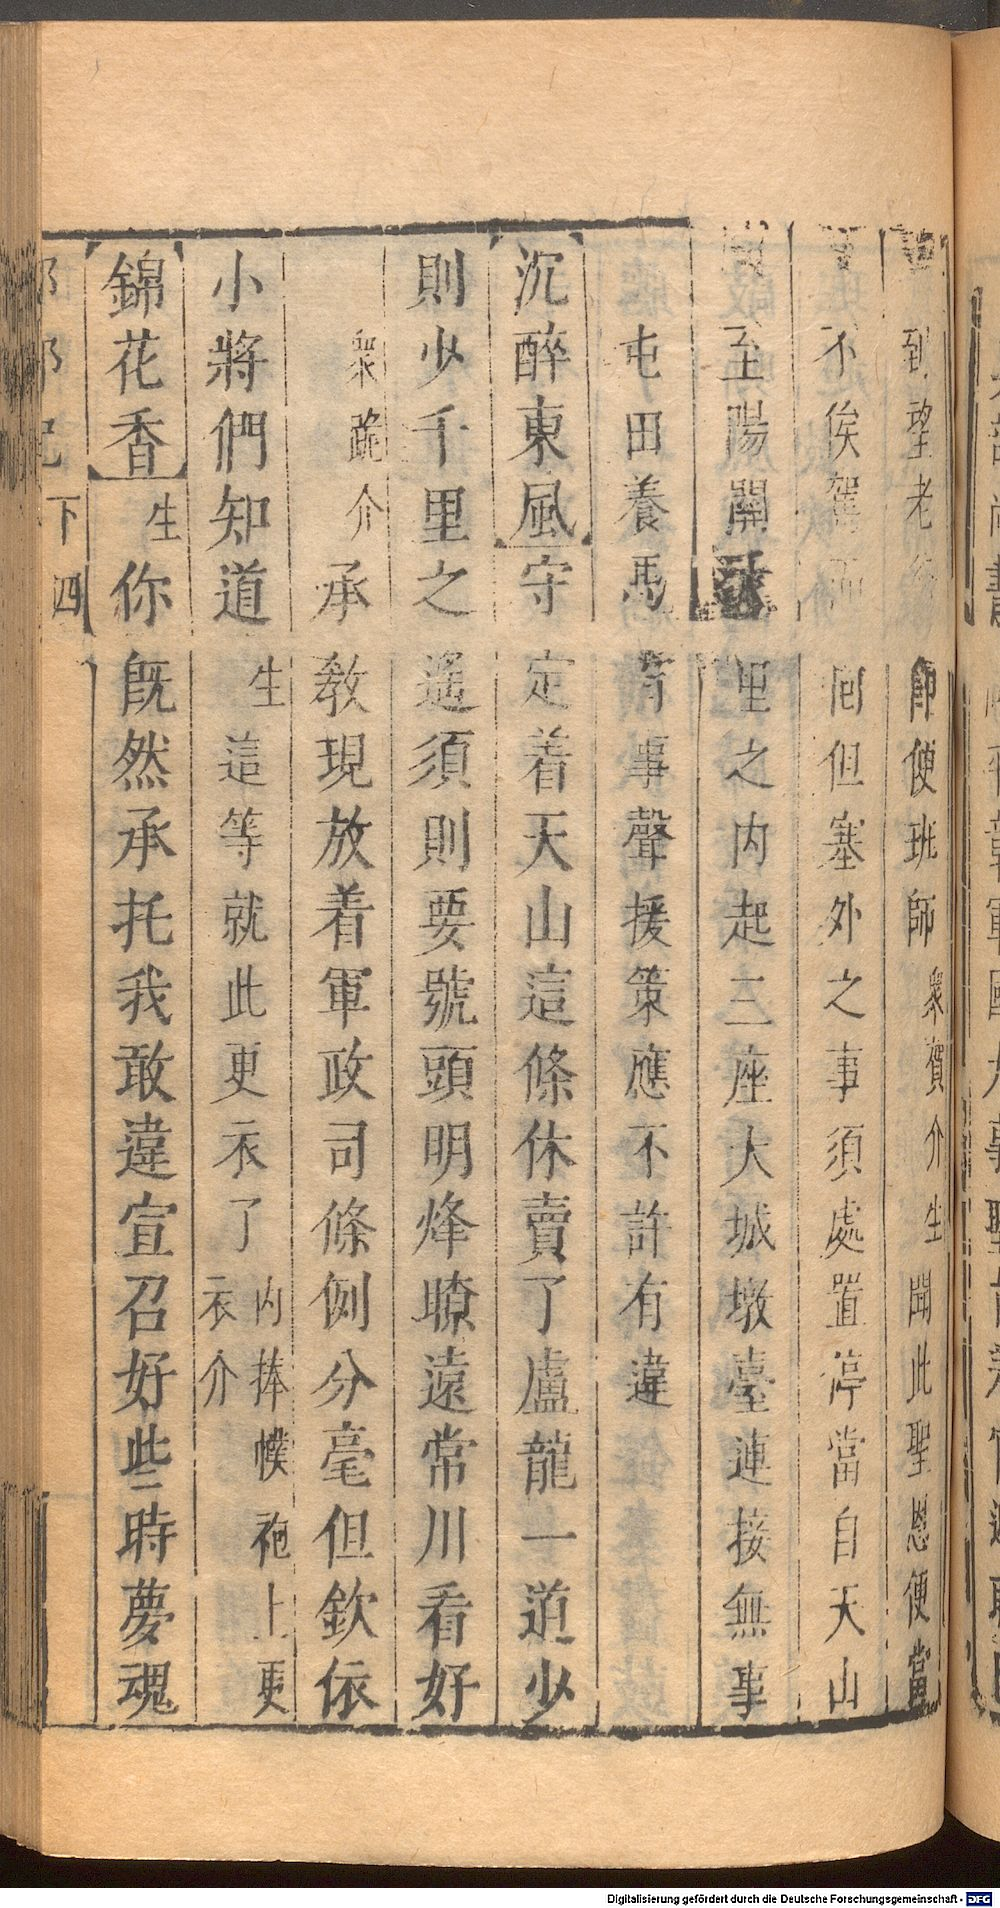 到望老將即便班師衆賀介生聞此聖恩便當
不俟駕而回但塞外之事須處置停當自天山
至陽關里之内起三座大城墩臺連接無事
屯田養馬有事聲援策應不許有違
沉醉東風守定着天山這條休賣了盧龍一道少
則少千里之遥須則要號頭明烽瞭遠常川看好
衆跪介承教現放着軍政司條例分毫但欽依
小將們知道生這等就此更衣了内捧幞袍上更衣介
錦花香生你既然承托我敢違宣召好些時夢魂
邯郸記下四
Digitalisierung gefördert durch die Deutsche Forschungsgemeinschaft - DFG